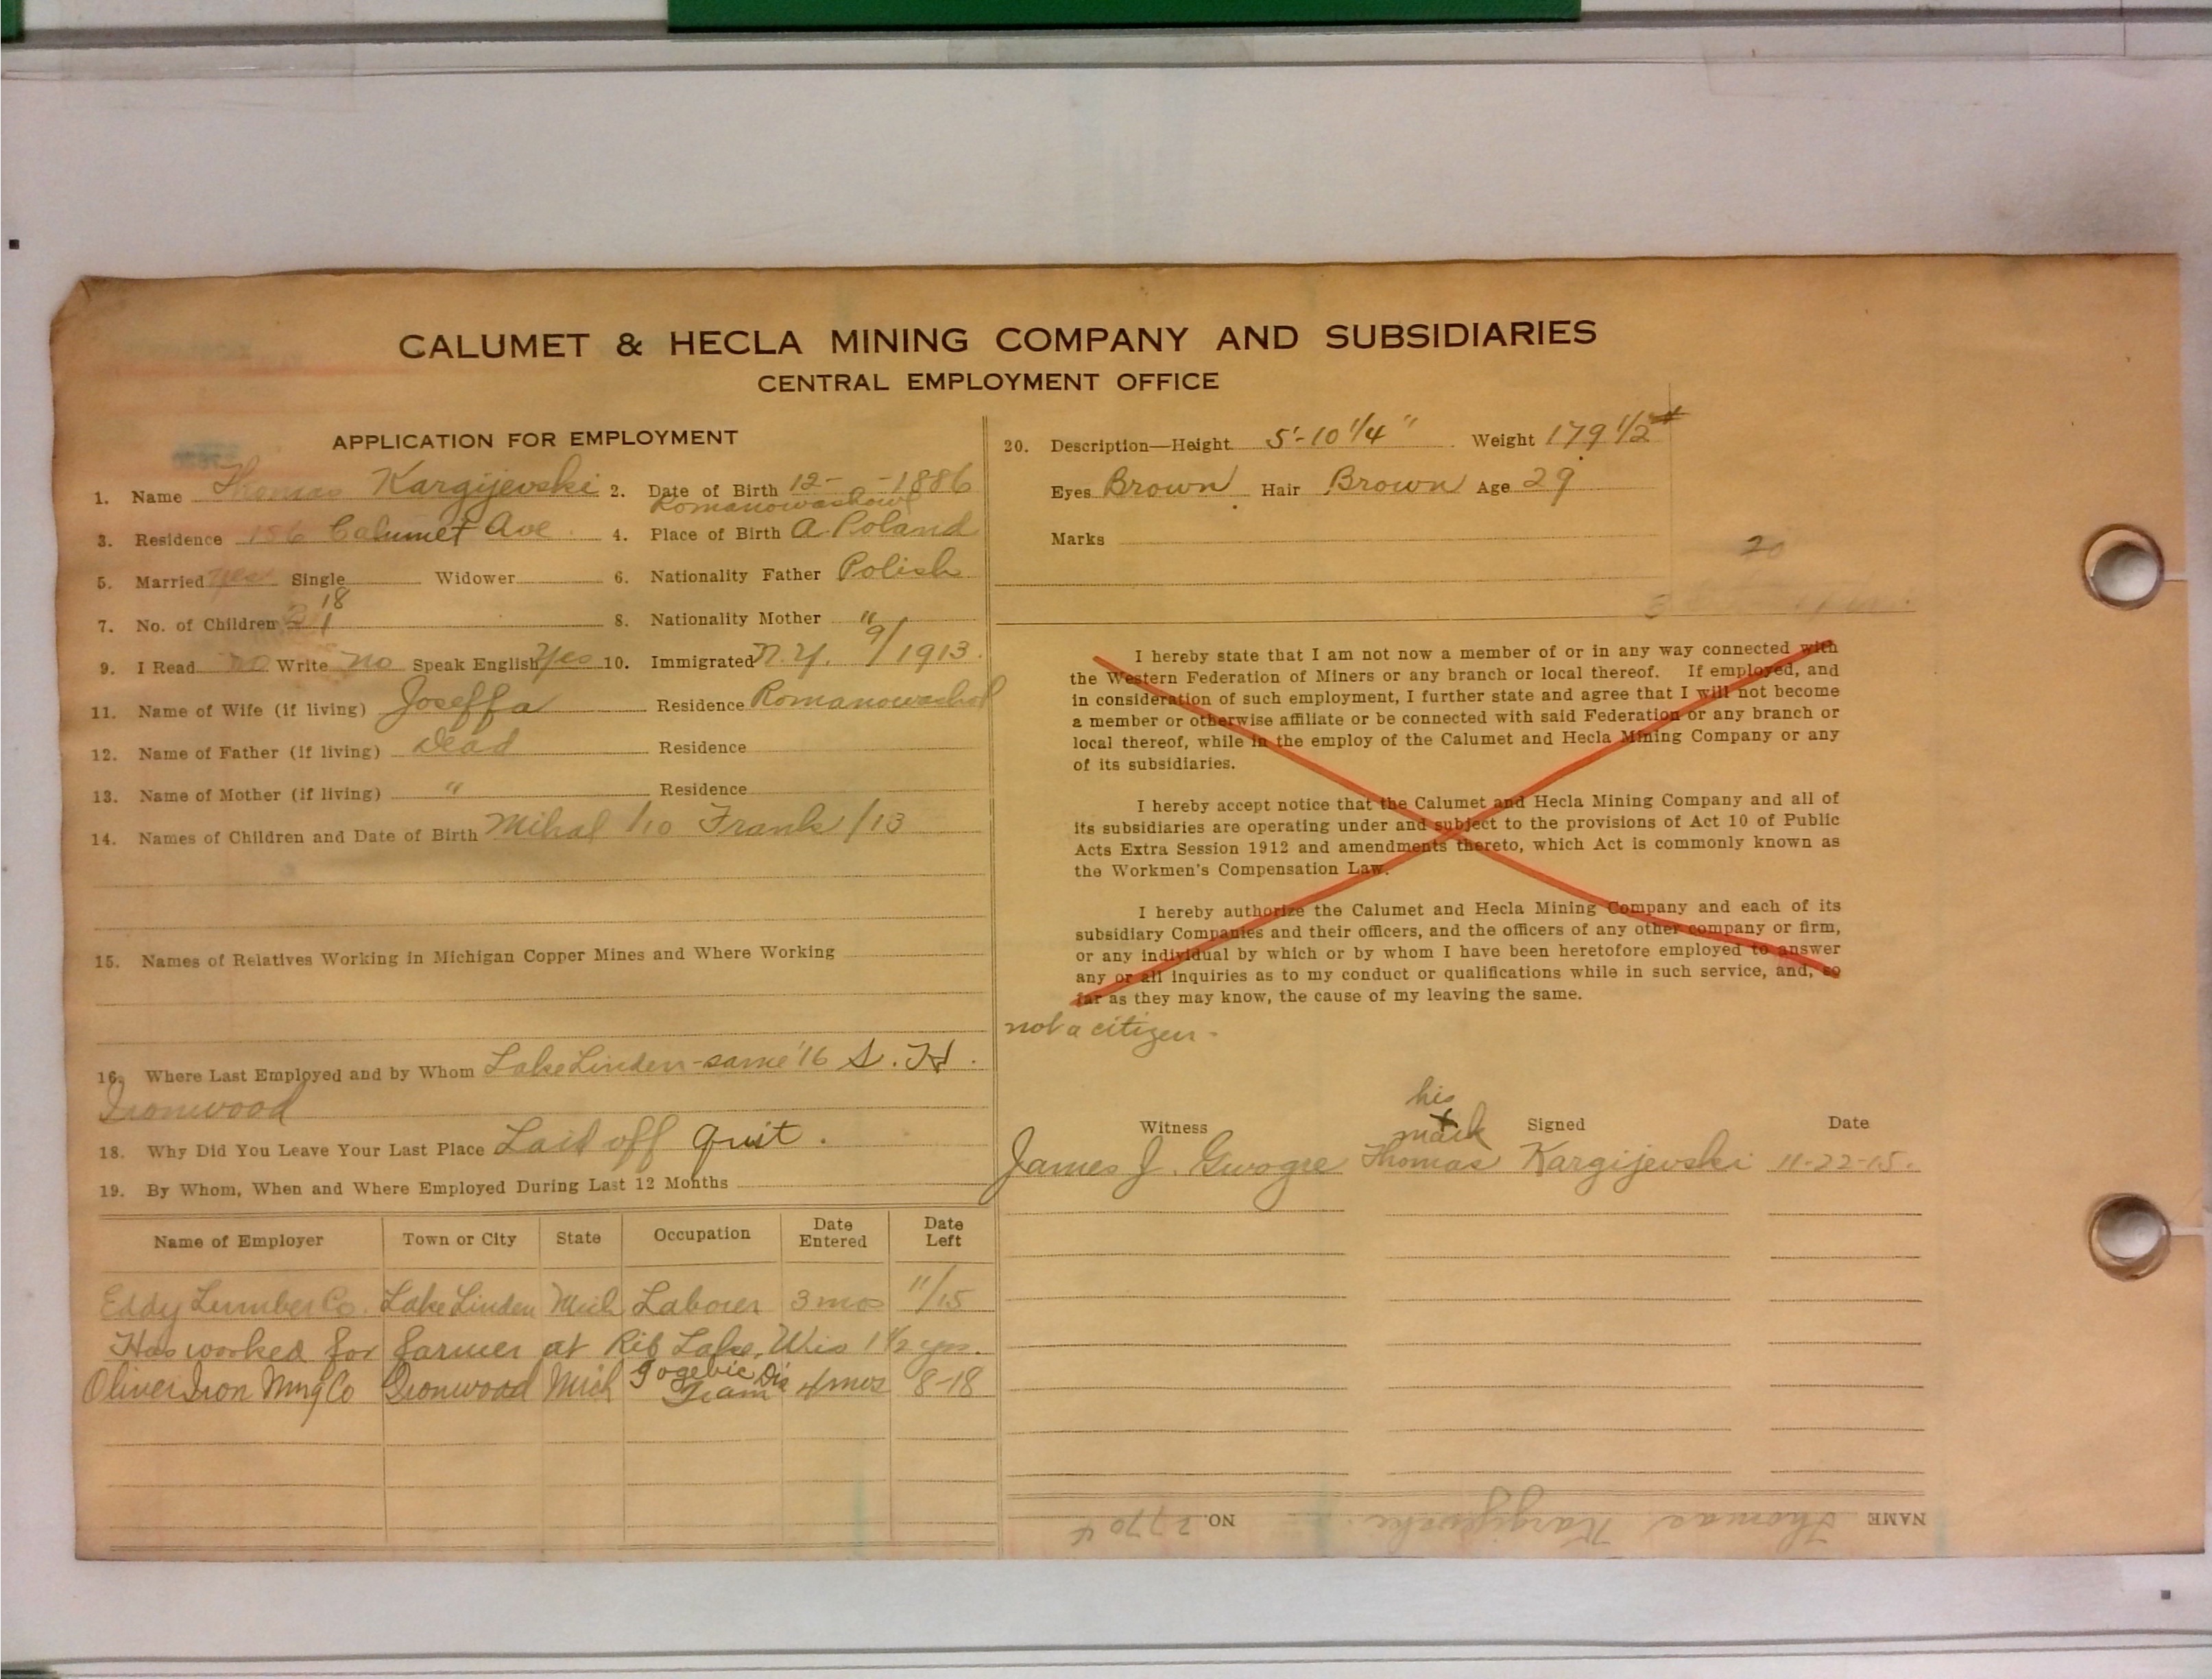 CALUMET & HECLA MINING COMPANY AND SUBSIDIARIES
CENTRAL EMPLOYMENT OFFICE
APPLICATION FOR EMPLOYMENT
1. Name Thomas Kargijevski 2. Date of Birth 12- -1886
Romanowashowl
3. Residence 156 Calumet Ave 4. Place of Birth A. Poland
5. Married yes Single Widower 6. Nationality Father Polish
18
7. No. of Children 1 8. Nationality Mother "
9. I Read no Write no Speak English Yes 10. Immigrated N.Y. 9/1913
11. Name of Wife (if living) Joseffa Residence Romanowashol
12. Name of Father (if living) Dead Residence
13. Name of Mother (if living) " Residence
14. Names of Children and Date of Birth Mihal /10 Frank /13
15. Names of Relatives Working in Michigan Copper Mines and Where Working
16. Where Last Employed and by Whom Lake Linden - same '16 S. H.
Ironwood
18. Why Did You Leave Your Last Place Laid off quit.
19. By Whom, When and Where Employed During Last 12 Months
Name of Employer Town or City State Occupation Date Entered Date Left
Eddy Lumber Co. Lake Linden Mich Laborer 3 mos 11/15
Has worked for farmer at Rib Lake, Wis 1 1/2 yrs.
Oliver Iron Mng Co Ironwood Mich Gogebic Dis Tram 4 mos 8-18
20. Description—Height 5'-10 1/4" Weight 179 1/2 #
Eyes Brown Hair Brown Age 29
Marks
20
I hereby state that I am not now a member of or in any way connected with
the Western Federation of Miners or any branch or local thereof. If employed, and
in consideration of such employment, I further state and agree that I will not become
a member or otherwise affiliate or be connected with said Federation or any branch or
local thereof, while in the employ of the Calumet and Hecla Mining Company or any
of its subsidiaries.
I hereby accept notice that the Calumet and Hecla Mining Company and all of
its subsidiaries are operating under and subject to the provisions of Act 10 of Public
Acts Extra Session 1912 and amendments thereto, which Act is commonly known as
the Workmen's Compensation Law.
I hereby authorize the Calumet and Hecla Mining Company and each of its
subsidiary Companies and their officers, and the officers of any other company or firm,
or any individual by which or by whom I have been heretofore employed to answer
any or all inquiries as to my conduct or qualifications while in such service, and, so
far as they may know, the cause of my leaving the same.
not a citizen -
his
Witness x Signed Date
mark
James J. Gwogre Thomas Kargijevski 11-22-15.
NAME Thomas Kargijevski NO. 27704